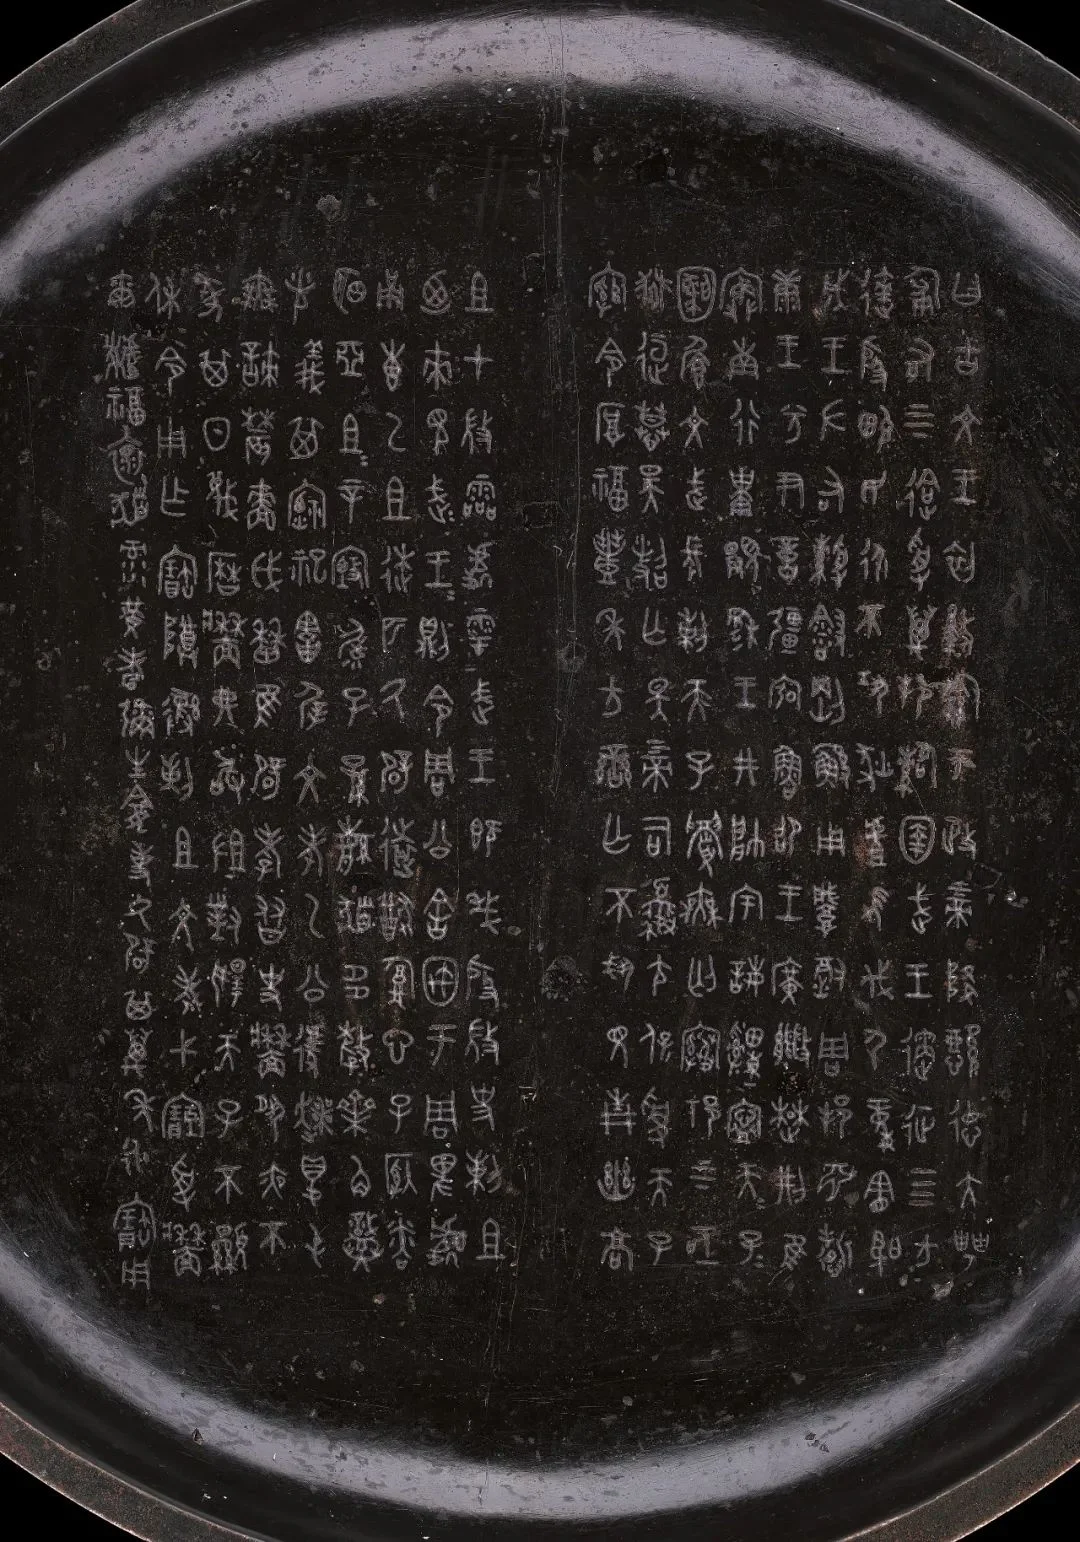 曰古文王初盭龢于政上帝降懿德大甹
匍有上下迨受萬邦𩰬圉武王遹征四方
達殷畯民永不巩狄虘髟伐尸童憲聖
成王左右綬會剛鯀用肇徹周邦淵哲
康王兮尹億疆宏魯卲王廣能楚荊隹
寏南行祗覭穆王井帥宇誨申寧天子天子
圉纘文武長剌天子眉無匄褰祁上下亟
獄逗慕昊照亡斁上帝司夒尢保受天子
綰令厚福豐年方蠻亡不䟒見青幽高
且才微靈處雩武王既𢦏殷微史剌且
迺來見武王武王則令周公舍寓于周卑處
甬惠乙且逨匹厥辟遠猷腹心子納
粦明亞且且辛甄毓子孫繁祓多釐齊角熾
光義其禋祀害犀文考乙公遽爽得屯
無諫農嗇戉曆隹辟孝友史牆夙夜不
㒸其日蔑曆牆弗敢沮對揚天子不顯
休令用乍寶尊彝剌且文考弋𡪹受牆
爾黻福懷髮彔黃耇彌生龕事厥辟其萬年永寶用